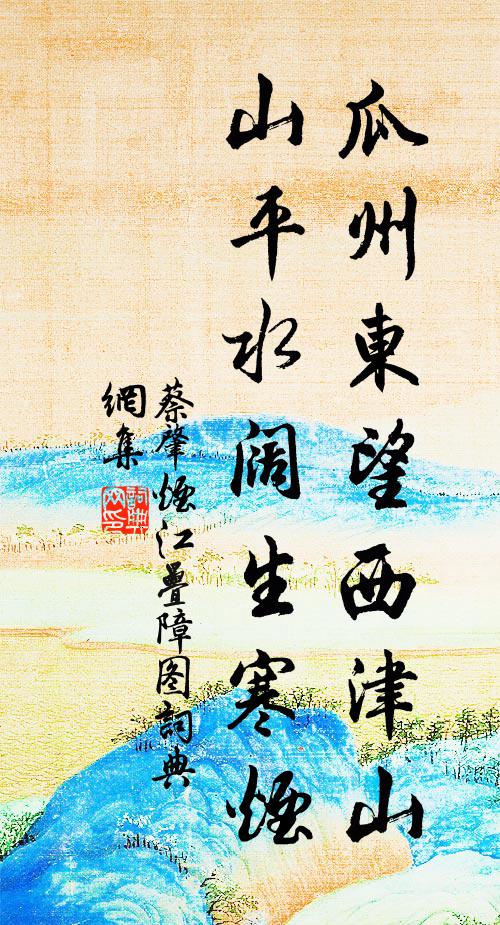 瓜州東望西津山
山平水阔生寒煙
蔡肇煙江疊障图詞典
網集
詞典
网印